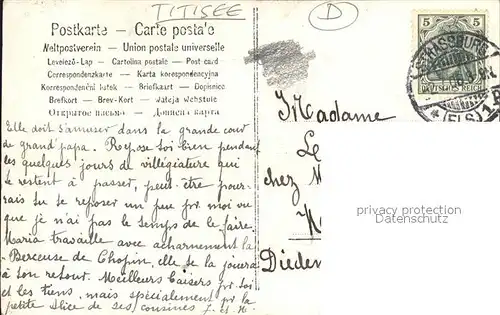 TITISEE
D
Postkarte — Carte postale
Weltpostverein — Union postale universelle
Levelező-Lap — Cartolina postale — Post card
Correspondenzkarte — Karta korespondencyjna
Korrespondenční lístek — Briefkaart — Dopisnice
Brefkort — Brev-Kort — Tarjeta
Открытое письмо — Дописна карта
Elle doit s'amuser dans la grande cour
de grand papa. Repose toi bien pendant
les quelques jours de villégiature qui
te restent à passer, peut-être pour-
rais tu te reposer un peu pr moi vu
que je n'ai pas le temps de le faire.
Maria travaille avec acharnement la
Berceuse de Chopin, elle te la jouera
à ton retour. Meilleurs baisers pr toi
et les tiens, mais spécialement pr la
petite Alice de ses cousines J. et M.
5 5
DEUTSCHES REICH
STRASSBURG
(ELS) 1
Madame
Le
chez M
Dieden
privacy protection
Datenschutz